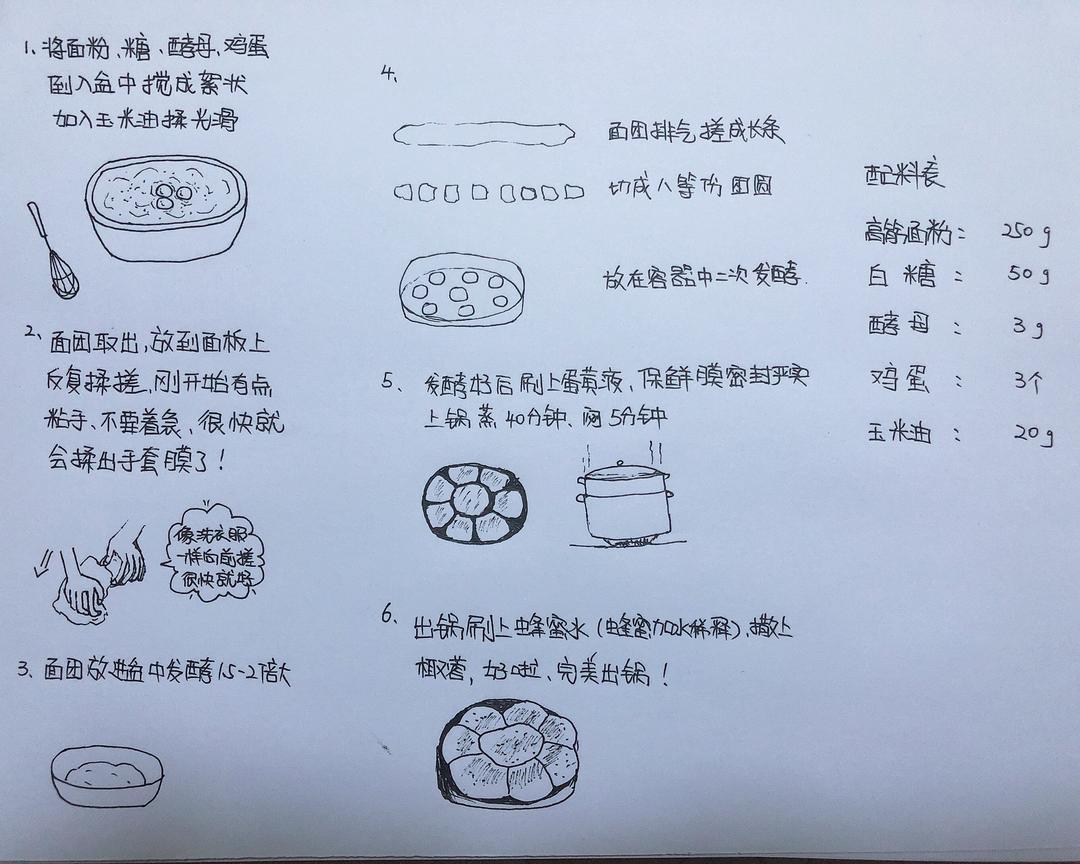 1、将面粉、糖、酵母、鸡蛋
倒入盆中搅成絮状
加入玉米油揉光滑
2、面团取出,放到面板上
反复揉搓,刚开始有点
粘手、不要着急、很快就
会揉出手套膜了!
像洗衣服
一样向前搓
很快就好
3、面团放进盆中发酵1.5-2倍大
4、
面团排气搓成长条
切成八等份团圆
放在容器中二次发酵.
5、发酵好后刷上蛋黄液、保鲜膜密封严实
上锅蒸40分钟、闷5分钟
6、出锅刷上蜂蜜水(蜂蜜加水稀释)、撒上
椰蓉,好啦、完美出锅!
配料表
高筋面粉: 250g
白糖: 50g
酵母: 3g
鸡蛋: 3个
玉米油: 20g